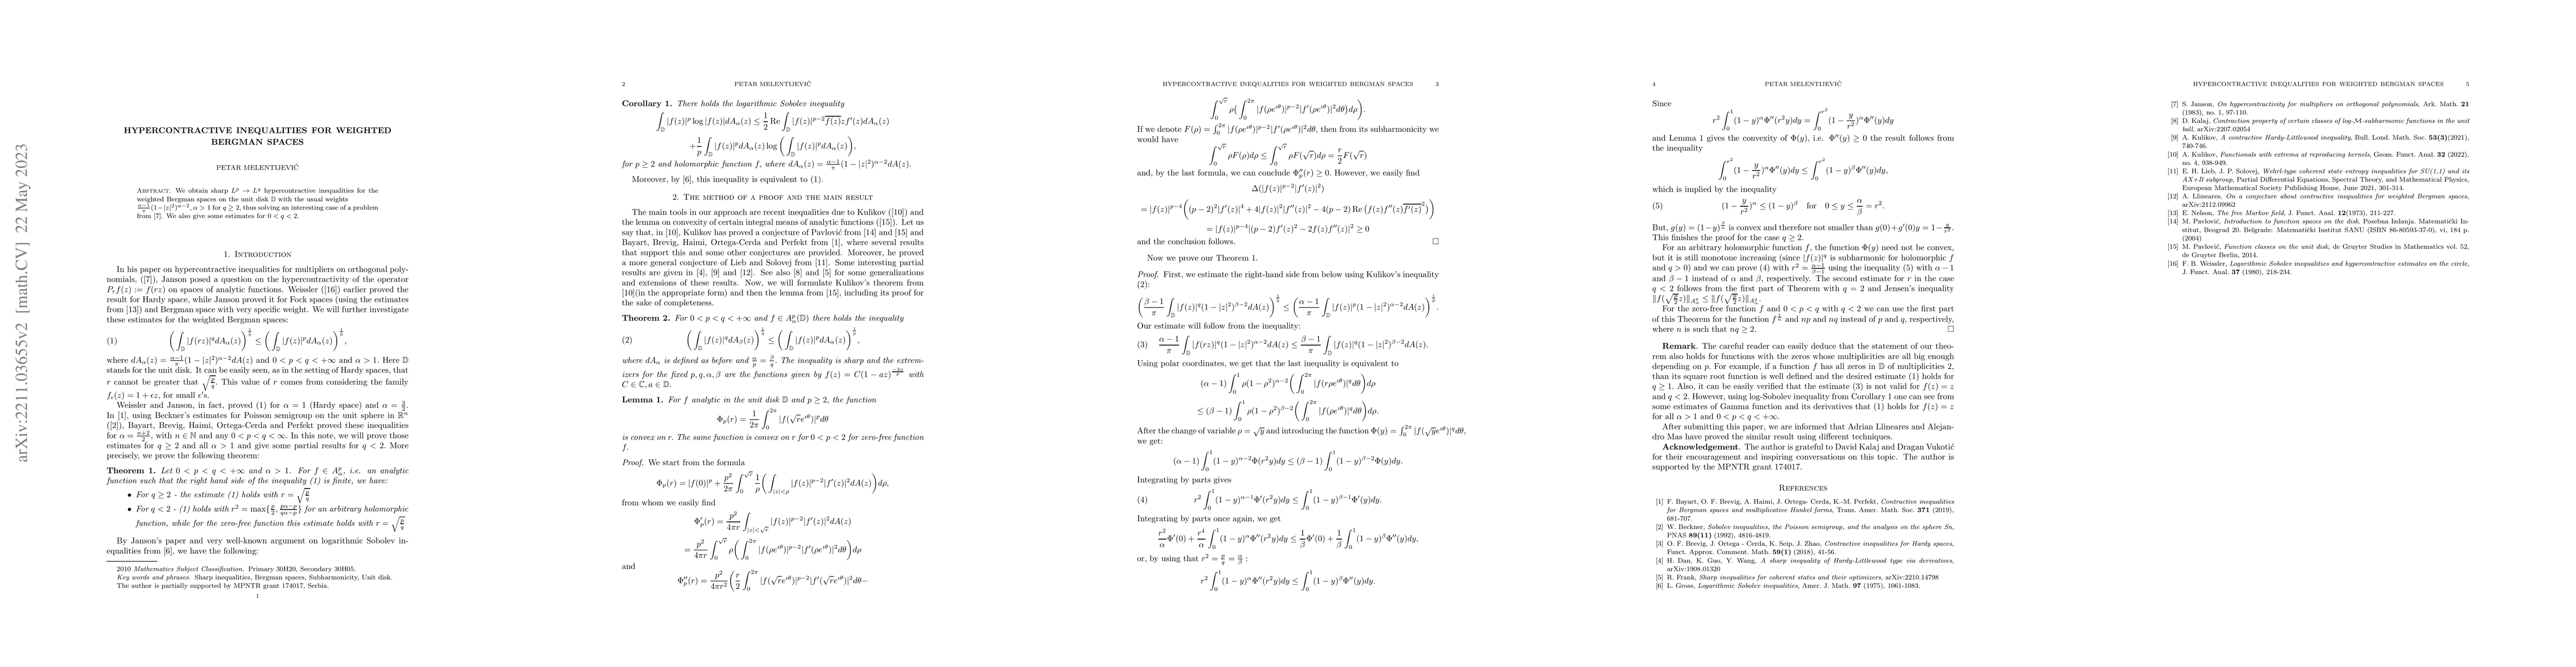 arXiv:2211.03655v2 [math.CV] 22 May 2023
HYPERCONTRACTIVE INEQUALITIES FOR WEIGHTED
BERGMAN SPACES
PETAR MELENTIJEVIĆ
ABSTRACT. We obtain sharp L^p → L^q hypercontractive inequalities for the
weighted Bergman spaces on the unit disk 𝔻 with the usual weights
\frac{α−1}{π}(1−|z|²)^{α−2}, α > 1 for q ≥ 2, thus solving an interesting case of a problem
from [7]. We also give some estimates for 0 < q < 2.
1. INTRODUCTION
In his paper on hypercontractive inequalities for multipliers on orthogonal poly-
nomials, ([7]), Janson posed a question on the hypercontractivity of the operator
P_r f(z) := f(rz) on spaces of analytic functions. Weissler ([16]) earlier proved the
result for Hardy space, while Janson proved it for Fock spaces (using the estimates
from [13]) and Bergman space with very specific weight. We will further investigate
these estimates for the weighted Bergman spaces:
(1) (∫_𝔻 |f(rz)|^q dA_α(z))^{1/q} ≤ (∫_𝔻 |f(z)|^p dA_α(z))^{1/p},
where dA_α(z) = \frac{α−1}{π}(1 − |z|²)^{α−2}dA(z) and 0 < p < q < +∞ and α > 1. Here 𝔻
stands for the unit disk. It can be easily seen, as in the setting of Hardy spaces, that
r cannot be greater that \sqrt{\frac{p}{q}}. This value of r comes from considering the family
f_ε(z) = 1 + εz, for small ε's.
Weissler and Janson, in fact, proved (1) for α = 1 (Hardy space) and α = \frac{3}{2}.
In [1], using Beckner's estimates for Poisson semigroup on the unit sphere in ℝ^n
([2]), Bayart, Brevig, Haimi, Ortega-Cerda and Perfekt proved these inequalities
for α = \frac{n+2}{2}, with n ∈ ℕ and any 0 < p < q < ∞. In this note, we will prove those
estimates for q ≥ 2 and all α > 1 and give some partial results for q < 2. More
precisely, we prove the following theorem:
Theorem 1. Let 0 < p < q < +∞ and α > 1. For f ∈ A^p_α, i.e. an analytic
function such that the right hand side of the inequality (1) is finite, we have:
• For q ≥ 2 - the estimate (1) holds with r = \sqrt{\frac{p}{q}}
• For q < 2 - (1) holds with r² = max{\frac{p}{2}, \frac{pα−p}{qα−p}} for an arbitrary holomorphic
function, while for the zero-free function this estimate holds with r = \sqrt{\frac{p}{q}}
By Janson's paper and very well-known argument on logarithmic Sobolev in-
equalities from [6], we have the following:
2010 Mathematics Subject Classification. Primary 30H20, Secondary 30H05.
Key words and phrases. Sharp inequalities, Bergman spaces, Subharmonicity, Unit disk.
The author is partially supported by MPNTR grant 174017, Serbia.
1
2 PETAR MELENTIJEVIĆ
Corollary 1. There holds the logarithmic Sobolev inequality
∫_𝔻 |f(z)|^p log |f(z)|dA_α(z) ≤ \frac{1}{2} Re ∫_𝔻 |f(z)|^{p−2}\overline{f(z)}zf′(z)dA_α(z)
+\frac{1}{p} ∫_𝔻 |f(z)|^p dA_α(z) log (∫_𝔻 |f(z)|^p dA_α(z)),
for p ≥ 2 and holomorphic function f, where dA_α(z) = \frac{α−1}{π}(1 − |z|²)^{α−2}dA(z).
Moreover, by [6], this inequality is equivalent to (1).
2. THE METHOD OF A PROOF AND THE MAIN RESULT
The main tools in our approach are recent inequalities due to Kulikov ([10]) and
the lemma on convexity of certain integral means of analytic functions ([15]). Let us
say that, in [10], Kulikov has proved a conjecture of Pavlović from [14] and [15] and
Bayart, Brevig, Haimi, Ortega-Cerda and Perfekt from [1], where several results
that support this and some other conjectures are proved. Moreover, he proved
a more general conjecture of Lieb and Solovej from [11]. Some interesting partial
results are given in [4], [9] and [12]. See also [8] and [5] for some generalizations
and extensions of these results. Now, we will formulate Kulikov's theorem from
[10](in the appropriate form) and then the lemma from [15], including its proof for
the sake of completeness.
Theorem 2. For 0 < p < q < +∞ and f ∈ A^p_α(𝔻) there holds the inequality
(2) (∫_𝔻 |f(z)|^q dA_β(z))^{1/q} ≤ (∫_𝔻 |f(z)|^p dA_α(z))^{1/p},
where dA_α is defined as before and \frac{α}{p} = \frac{β}{q}. The inequality is sharp and the extrem-
izers for the fixed p, q, α, β are the functions given by f(z) = C(1 − az)^{\frac{−2α}{p}} with
C ∈ ℂ, a ∈ 𝔻.
Lemma 1. For f analytic in the unit disk 𝔻 and p ≥ 2, the function
Φ_p(r) = \frac{1}{2π} ∫_0^{2π} |f(\sqrt{r}e^{ıθ})|^p dθ
is convex on r. The same function is convex on r for 0 < p < 2 for zero-free function
f.
Proof. We start from the formula
Φ_p(r) = |f(0)|^p + \frac{p²}{2π} ∫_0^{\sqrt{r}} \frac{1}{ρ}(∫_{|z|<ρ} |f(z)|^{p−2}|f′(z)|²dA(z))dρ,
from whom we easily find
Φ′_p(r) = \frac{p²}{4πr} ∫_{|z|<\sqrt{r}} |f(z)|^{p−2}|f′(z)|²dA(z)
= \frac{p²}{4πr} ∫_0^{\sqrt{r}} ρ(∫_0^{2π} |f(ρe^{ıθ})|^{p−2}|f′(ρe^{ıθ})|²dθ)dρ
and
Φ″_p(r) = \frac{p²}{4πr²}(\frac{r}{2} ∫_0^{2π} |f(\sqrt{r}e^{ıθ})|^{p−2}|f′(\sqrt{r}e^{ıθ})|²dθ−
HYPERCONTRACTIVE INEQUALITIES FOR WEIGHTED BERGMAN SPACES 3
∫_0^{\sqrt{r}} ρ(∫_0^{2π} |f(ρe^{ıθ})|^{p−2}|f′(ρe^{ıθ})|²dθ)dρ).
If we denote F(ρ) = ∫_0^{2π} |f(ρe^{ıθ})|^{p−2}|f′(ρe^{ıθ})|²dθ, then from its subharmonicity we
would have
∫_0^{\sqrt{r}} ρF(ρ)dρ ≤ ∫_0^{\sqrt{r}} ρF(\sqrt{r})dρ = \frac{r}{2}F(\sqrt{r})
and, by the last formula, we can conclude Φ″_p(r) ≥ 0. However, we easily find
Δ(|f(z)|^{p−2}|f′(z)|²)
= |f(z)|^{p−4}((p − 2)²|f′(z)|⁴ + 4|f(z)|²|f″(z)|² − 4(p − 2) Re (f(z)f″(z)\overline{f′(z)}²))
= |f(z)|^{p−4}|(p − 2)f′(z)² − 2f(z)f″(z)|² ≥ 0
and the conclusion follows. □
Now we prove our Theorem 1.
Proof. First, we estimate the right-hand side from below using Kulikov's inequality
(2):
(\frac{β − 1}{π} ∫_𝔻 |f(z)|^q(1−|z|²)^{β−2}dA(z))^{1/q} ≤ (\frac{α − 1}{π} ∫_𝔻 |f(z)|^p(1−|z|²)^{α−2}dA(z))^{1/p}.
Our estimate will follow from the inequality:
(3) \frac{α − 1}{π} ∫_𝔻 |f(rz)|^q(1 − |z|²)^{α−2}dA(z) ≤ \frac{β − 1}{π} ∫_𝔻 |f(z)|^q(1 − |z|²)^{β−2}dA(z).
Using polar coordinates, we get that the last inequality is equivalent to
(α − 1) ∫_0^1 ρ(1 − ρ²)^{α−2}(∫_0^{2π} |f(rρe^{ıθ})|^q dθ)dρ
≤ (β − 1) ∫_0^1 ρ(1 − ρ²)^{β−2}(∫_0^{2π} |f(ρe^{ıθ})|^q dθ)dρ.
After the change of variable ρ = \sqrt{y} and introducing the function Φ(y) = ∫_0^{2π} |f(\sqrt{y}e^{ıθ})|^q dθ,
we get:
(α − 1) ∫_0^1 (1 − y)^{α−2}Φ(r²y)dy ≤ (β − 1) ∫_0^1 (1 − y)^{β−2}Φ(y)dy.
Integrating by parts gives
(4) r² ∫_0^1 (1 − y)^{α−1}Φ′(r²y)dy ≤ ∫_0^1 (1 − y)^{β−1}Φ′(y)dy.
Integrating by parts once again, we get
\frac{r²}{α}Φ′(0) + \frac{r⁴}{α} ∫_0^1 (1 − y)^αΦ″(r²y)dy ≤ \frac{1}{β}Φ′(0) + \frac{1}{β} ∫_0^1 (1 − y)^βΦ″(y)dy,
or, by using that r² = \frac{p}{q} = \frac{α}{β} :
r² ∫_0^1 (1 − y)^αΦ″(r²y)dy ≤ ∫_0^1 (1 − y)^βΦ″(y)dy.
4 PETAR MELENTIJEVIĆ
Since
r² ∫_0^1 (1 − y)^αΦ″(r²y)dy = ∫_0^{r²} (1 − \frac{y}{r²})^αΦ″(y)dy
and Lemma 1 gives the convexity of Φ(y), i.e. Φ″(y) ≥ 0 the result follows from
the inequality
∫_0^{r²} (1 − \frac{y}{r²})^αΦ″(y)dy ≤ ∫_0^{r²} (1 − y)^βΦ″(y)dy,
which is implied by the inequality
(5) (1 − \frac{y}{r²})^α ≤ (1 − y)^β for 0 ≤ y ≤ \frac{α}{β} = r².
But, g(y) = (1−y)^{\frac{β}{α}} is convex and therefore not smaller than g(0)+g′(0)y = 1−\frac{y}{r²}.
This finishes the proof for the case q ≥ 2.
For an arbitrary holomorphic function f, the function Φ(y) need not be convex,
but it is still monotone increasing (since |f(z)|^q is subharmonic for holomorphic f
and q > 0) and we can prove (4) with r² = \frac{α−1}{β−1} using the inequality (5) with α − 1
and β − 1 instead of α and β, respectively. The second estimate for r in the case
q < 2 follows from the first part of Theorem with q = 2 and Jensen's inequality
‖f(\sqrt{\frac{p}{2}}z)‖_{A^q_α} ≤ ‖f(\sqrt{\frac{p}{2}}z)‖_{A^2_α}.
For the zero-free function f and 0 < p < q with q < 2 we can use the first part
of this Theorem for the function f^{\frac{1}{n}} and np and nq instead of p and q, respectively,
where n is such that nq ≥ 2. □
Remark. The careful reader can easily deduce that the statement of our theo-
rem also holds for functions with the zeros whose multiplicities are all big enough
depending on p. For example, if a function f has all zeros in 𝔻 of multiplicities 2,
than its square root function is well defined and the desired estimate (1) holds for
q ≥ 1. Also, it can be easily verified that the estimate (3) is not valid for f(z) = z
and q < 2. However, using log-Sobolev inequality from Corollary 1 one can see from
some estimates of Gamma function and its derivatives that (1) holds for f(z) = z
for all α > 1 and 0 < p < q < +∞.
After submitting this paper, we are informed that Adrian Llineares and Alejan-
dro Mas have proved the similar result using different techniques.
Acknowledgement. The author is grateful to David Kalaj and Dragan Vukotić
for their encouragement and inspiring conversations on this topic. The author is
supported by the MPNTR grant 174017.
REFERENCES
[1] F. Bayart, O. F. Brevig, A. Haimi, J. Ortega- Cerda, K.-M. Perfekt, Contractive inequalities
for Bergman spaces and multiplicative Hankel forms, Trans. Amer. Math. Soc. 371 (2019),
681-707.
[2] W. Beckner, Sobolev inequalities, the Poisson semigroup, and the analysis on the sphere Sn,
PNAS 89(11) (1992), 4816-4819.
[3] O. F. Brevig, J. Ortega - Cerda, K. Seip, J. Zhao, Contractive inequalities for Hardy spaces,
Funct. Approx. Comment. Math. 59(1) (2018), 41-56.
[4] H. Dan, K. Guo, Y. Wang, A sharp inequality of Hardy-Littlewood type via derivatives,
arXiv:1908.01320
[5] R. Frank, Sharp inequalities for coherent states and their optimizers, arXiv:2210.14798
[6] L. Gross, Logarithmic Sobolev inequalities, Amer. J. Math. 97 (1975), 1061-1083.
HYPERCONTRACTIVE INEQUALITIES FOR WEIGHTED BERGMAN SPACES 5
[7] S. Janson, On hypercontractivity for multipliers on orthogonal polynomials, Ark. Math. 21
(1983), no. 1, 97-110.
[8] D. Kalaj, Contraction property of certain classes of log-M-subharmonic functions in the unit
ball, arXiv:2207.02054
[9] A. Kulikov, A contractive Hardy-Littlewood inequality, Bull. Lond. Math. Soc. 53(3)(2021),
740-746.
[10] A. Kulikov, Functionals with extrema at reproducing kernels, Geom. Funct. Anal. 32 (2022),
no. 4, 938-949.
[11] E. H. Lieb, J. P. Solovej, Wehrl-type coherent state entropy inequalities for SU(1,1) and its
AX+B subgroup, Partial Differential Equations, Spectral Theory, and Mathematical Physics,
European Mathematical Society Publishing House, June 2021, 301-314.
[12] A. Llineares, On a conjecture about contractive inequalities for weighted Bergman spaces,
arXiv:2112.09962
[13] E. Nelson, The free Markov field, J. Funct. Anal. 12(1973), 211-227.
[14] M. Pavlović, Introduction to function spaces on the disk. Posebna Izdanja. Matematički In-
stitut, Beograd 20. Belgrade: Matematički Institut SANU (ISBN 86-80593-37-0), vi, 184 p.
(2004)
[15] M. Pavlović, Function classes on the unit disk, de Gruyter Studies in Mathematics vol. 52,
de Gruyter Berlin, 2014.
[16] F. B. Weissler, Logarithmic Sobolev inequalities and hypercontractive estimates on the circle,
J. Funct. Anal. 37 (1980), 218-234.